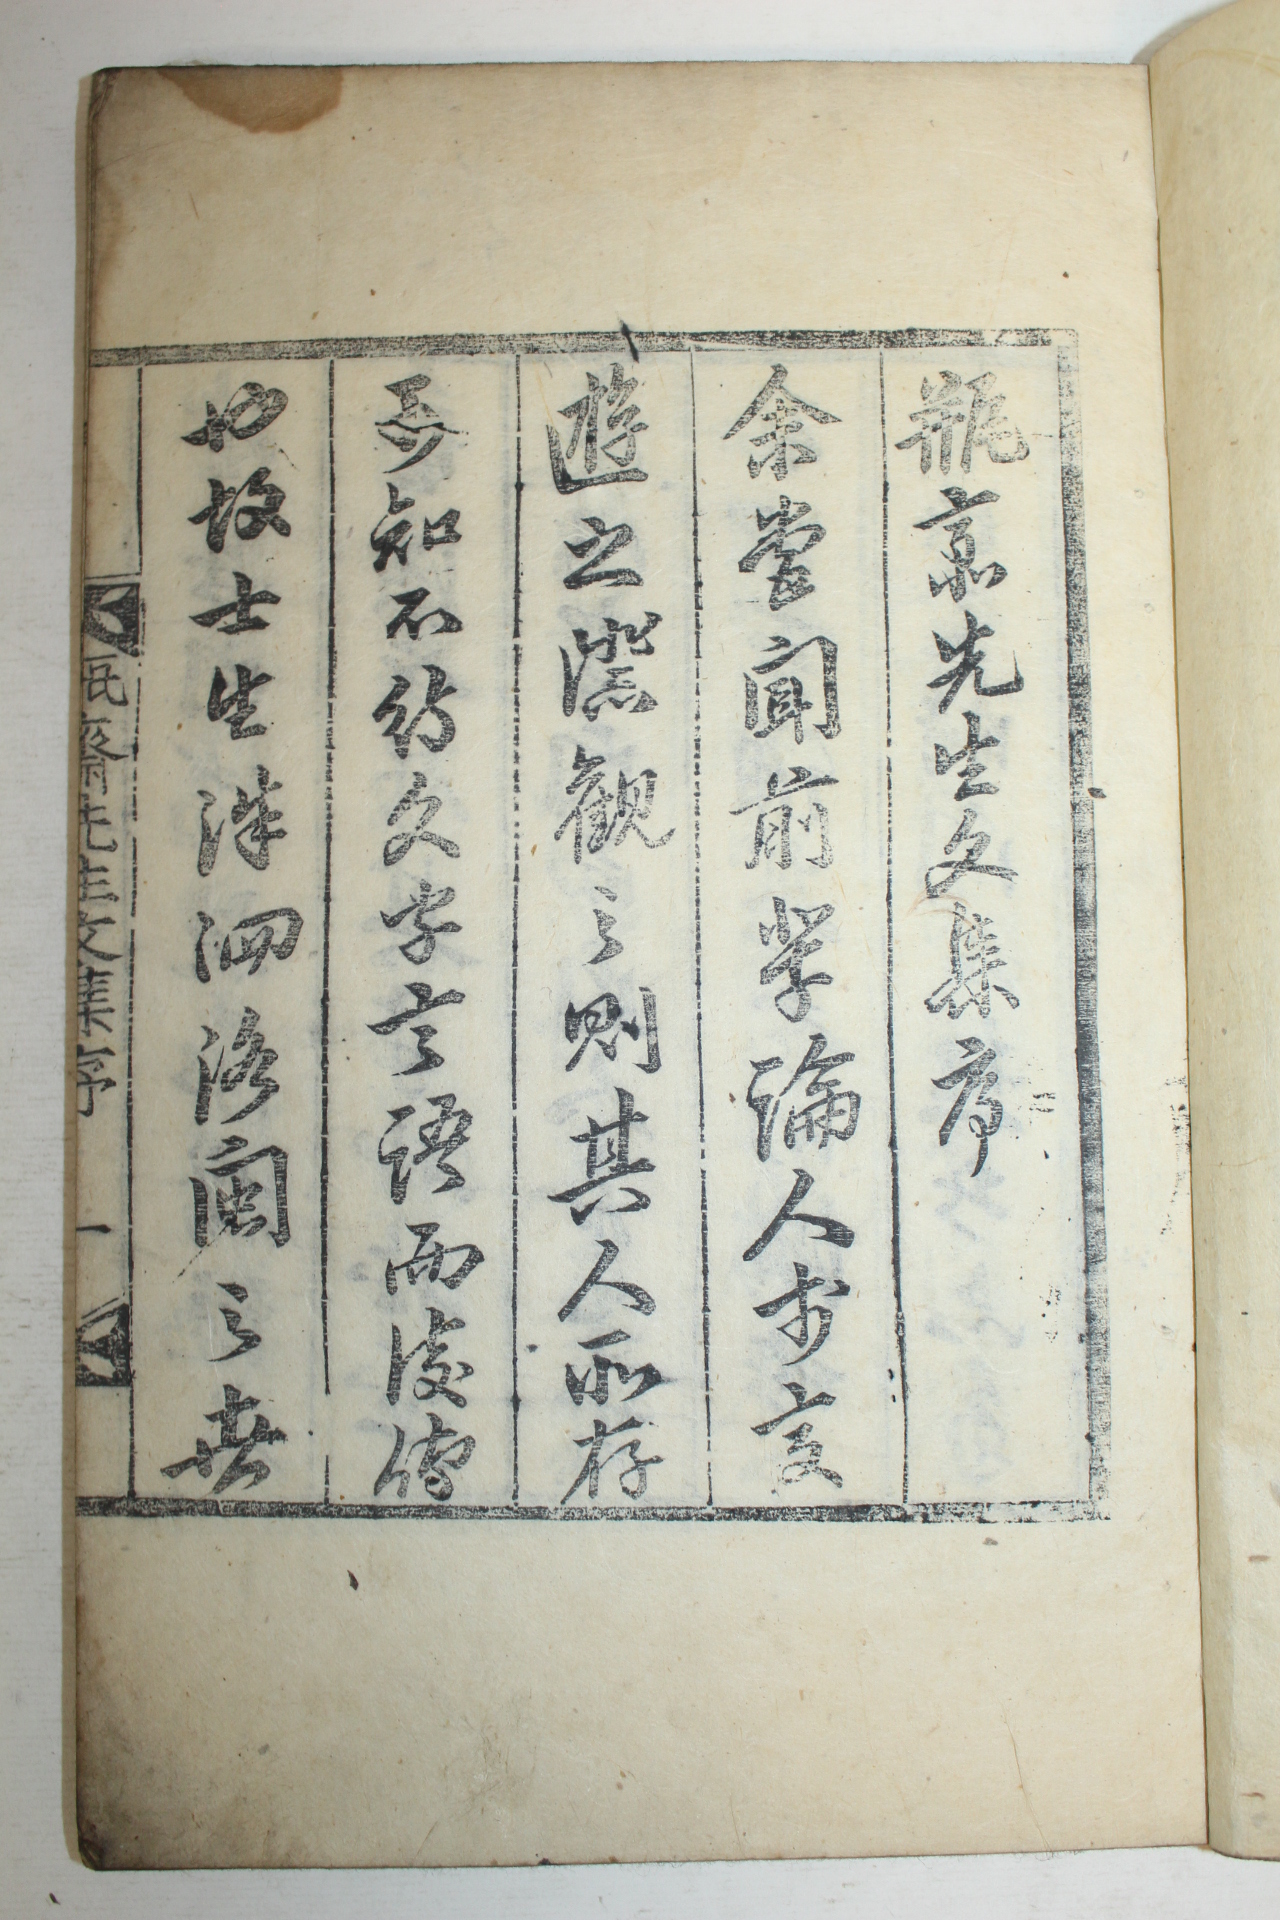 瓶齋先生文集序
余嘗聞前輩論人於交
遊之際觀之則其人所存
知不待文字言語而後傳
也故士生洙泗洛閩之世
齋先生文集序 一